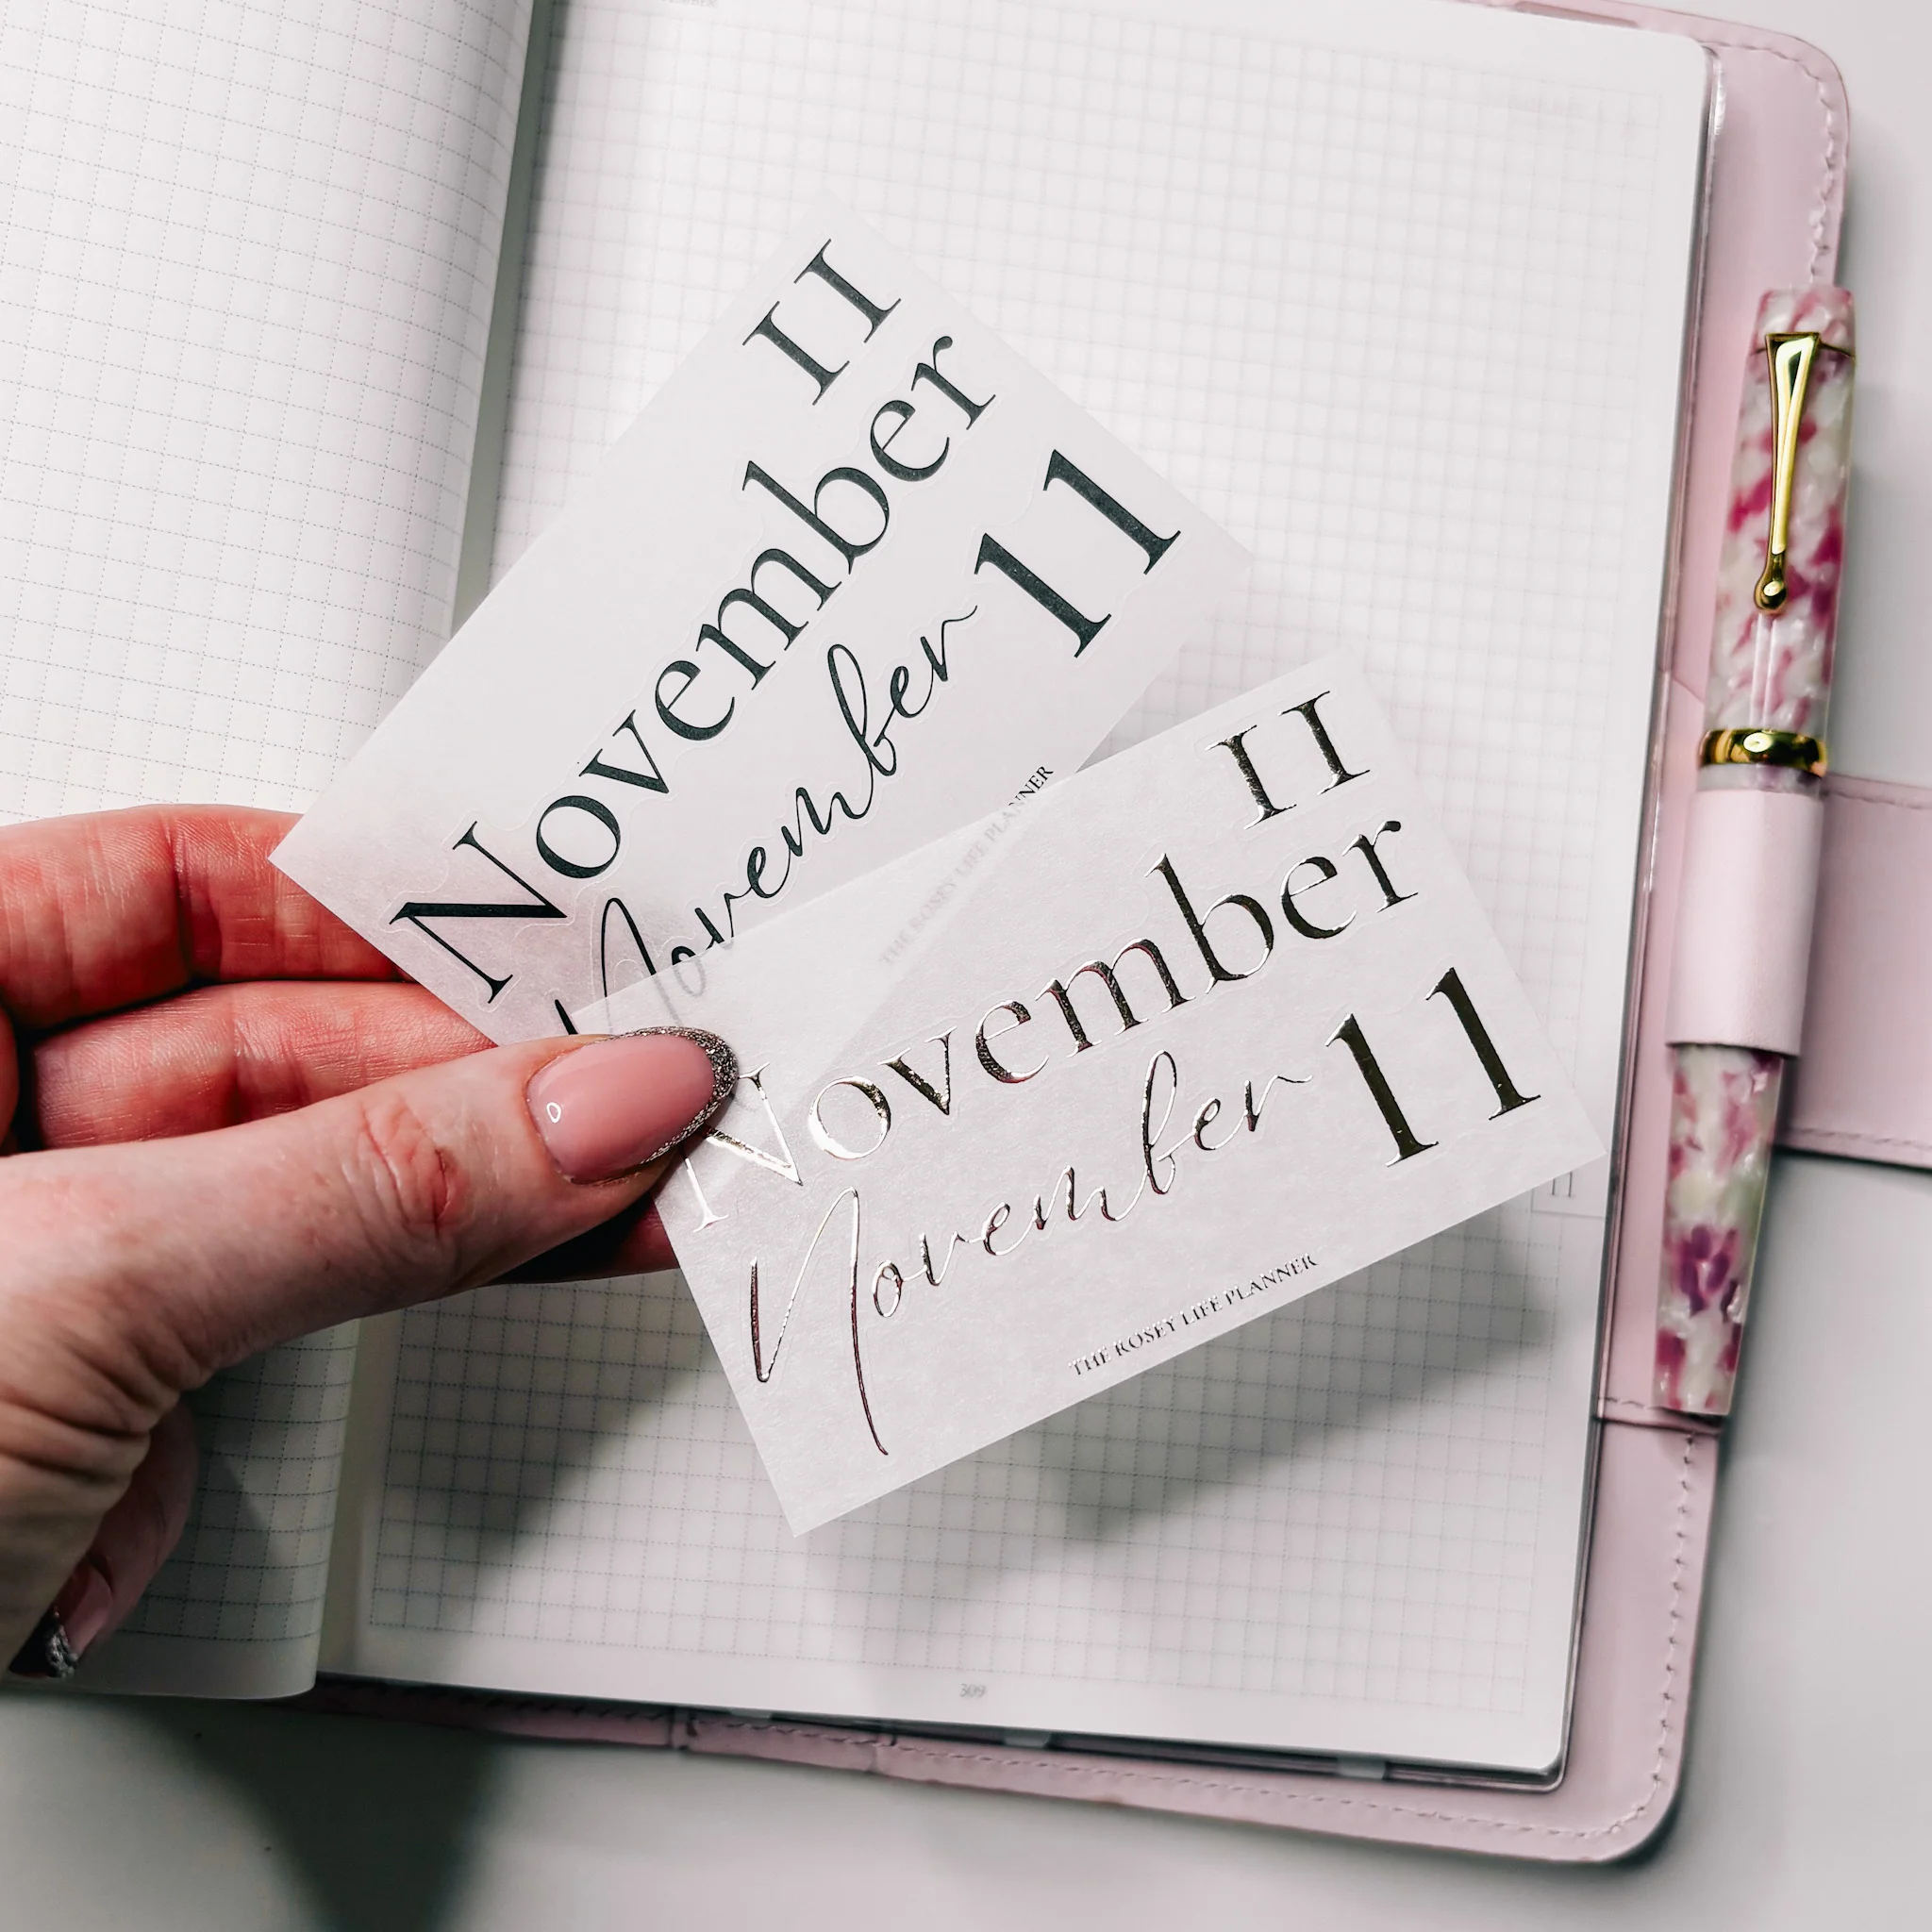 11
November
November 11
THE ROSEY LIFE PLANNER
11
November
November 11
THE ROSEY LIFE PLANNER
11
309